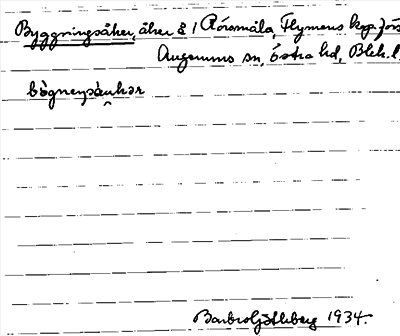 Byggningsåker, åker å 1 Rörsmåla, Flymens kap. förs
Augerums sn, Östra hd, Blek. l
bògneŋsàukər
Barbro Göthberg 1934.